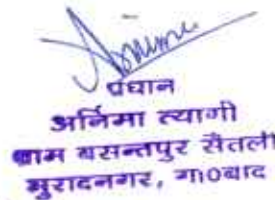 प्रधान
अनिमा त्यागी
ग्राम बसन्तपुर सैंतली
मुरादनगर, गा0बाद